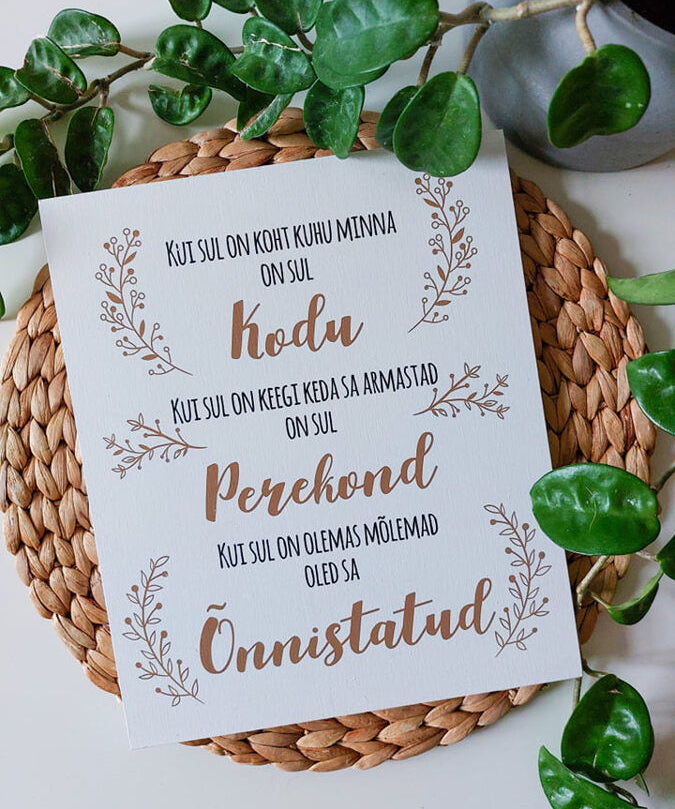 Kui sul on koht kuhu minna
on sul
Kodu
Kui sul on keegi keda sa armastad
on sul
Perekond
Kui sul on olemas mõlemad
oled sa
Õnnistatud